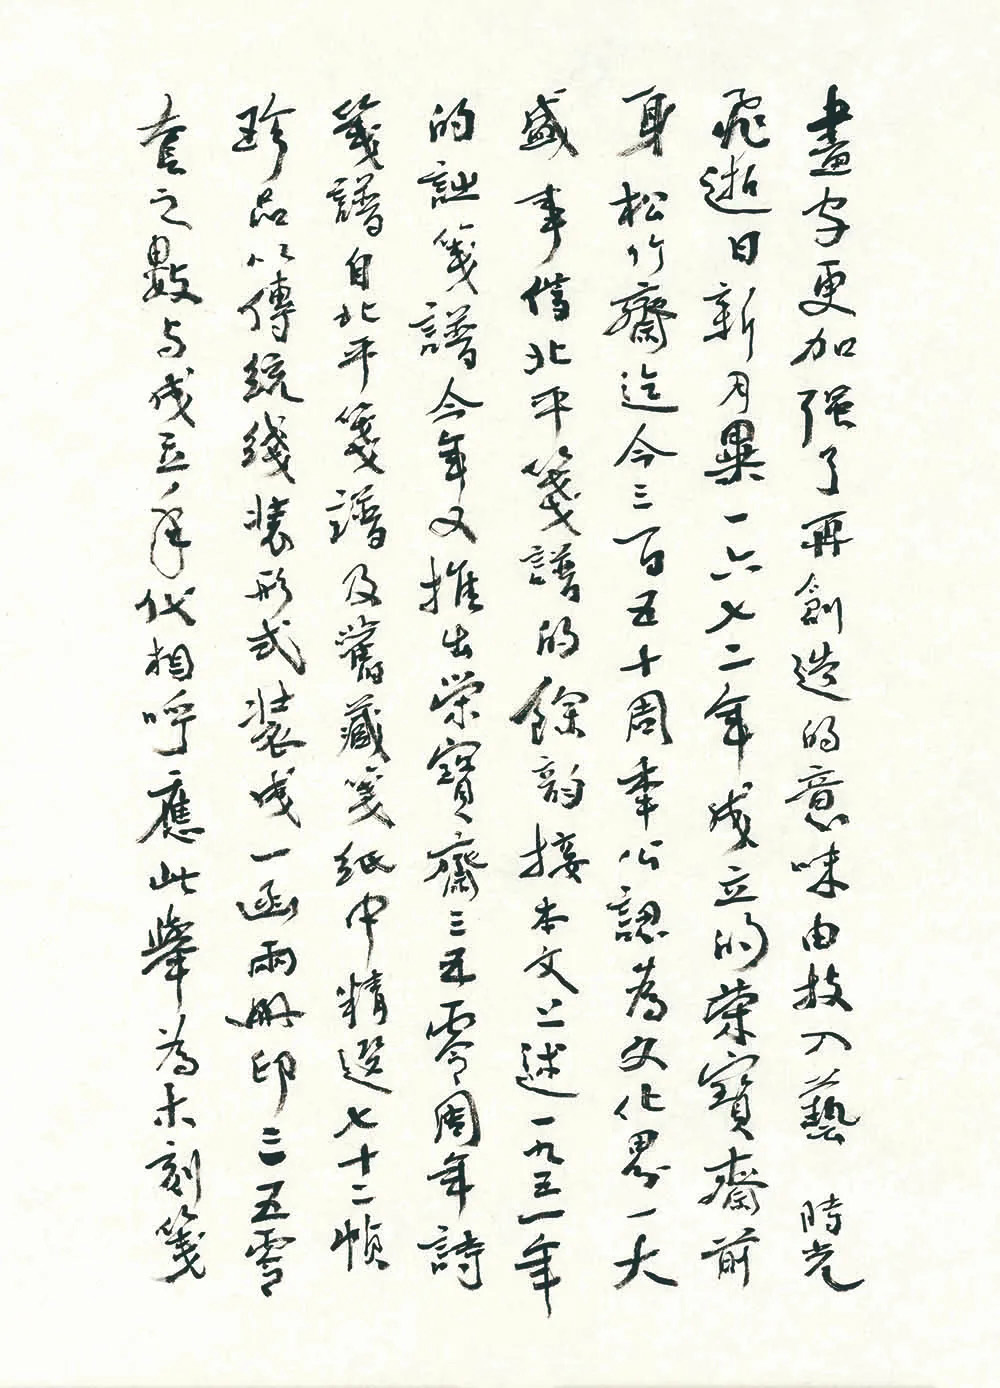 畫字更加强了再創造的意味由技入藝 時光
飛逝日新月異一六七二年成立的榮寶齋前
身松竹齋迄今三百五十周年公認為文化界一大
盛事借北平箋譜的餘韵接本文上述一九五一年
的詩箋譜今年又推出榮寶齋三五零周年詩
箋譜自北平箋譜及舊藏箋紙中精選七十二幀
珍品以傳統綫裝形式裝成一函兩冊印三五零
套之數与成立年代相呼應此舉為木刻箋